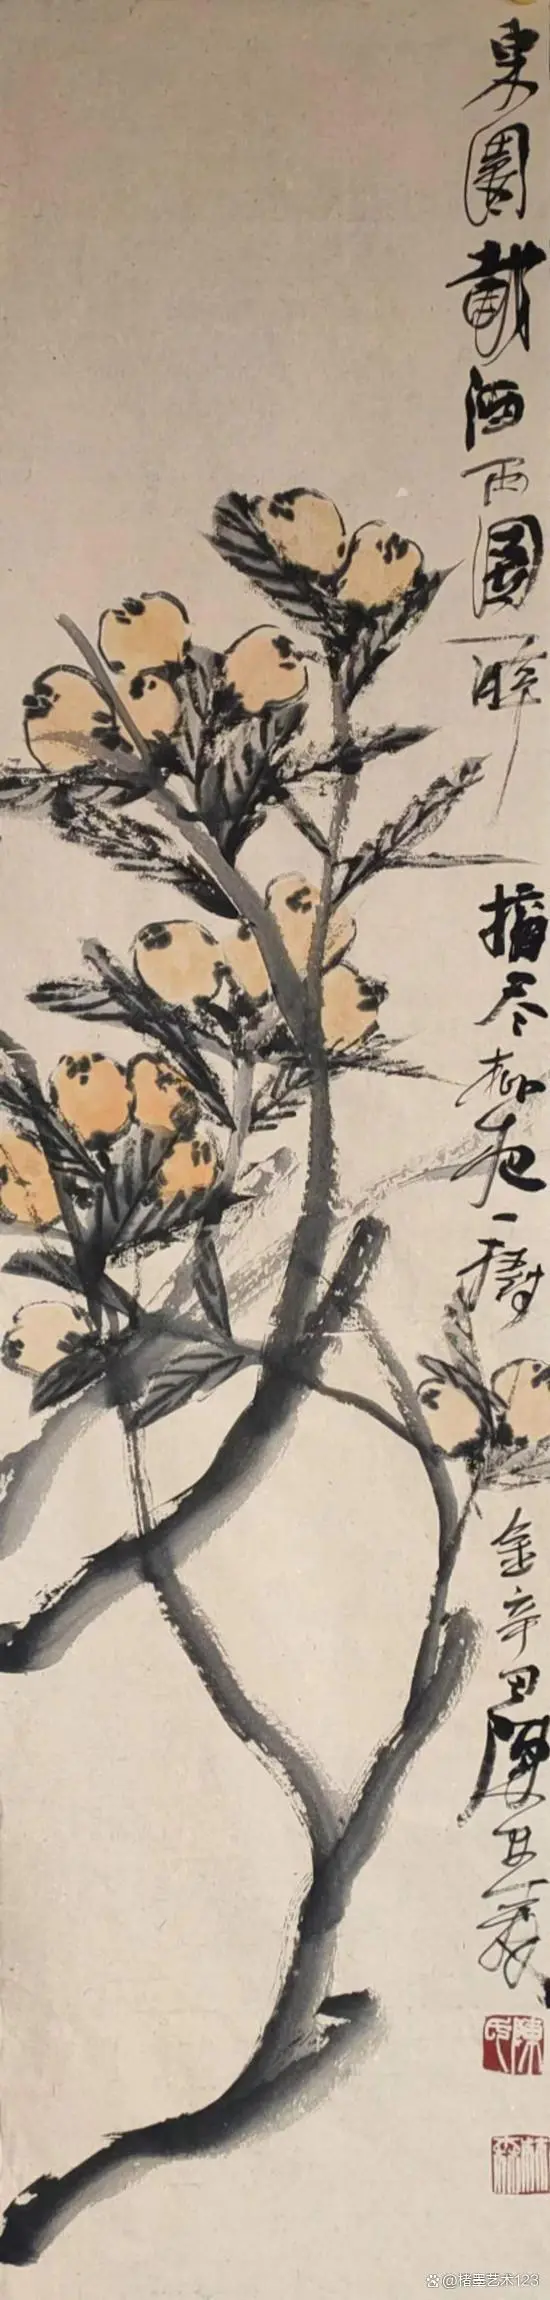 東園載酒西園醉 摘盡枇杷一樹金 辛丑
陳
@楮墨艺术123